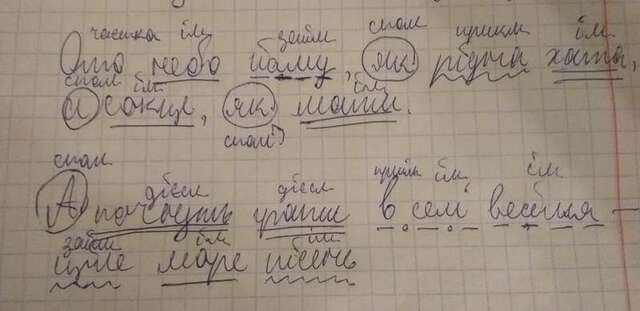 частка ім займ спол прикм ім
Ото небо йому, як рідна хата,
спол ім ім
а сонце, як мати.
спол
спол
дієсл дієсл прийм ім ім
А почнуть грати в селі весілля —
займ ім ім
ціле море пісень